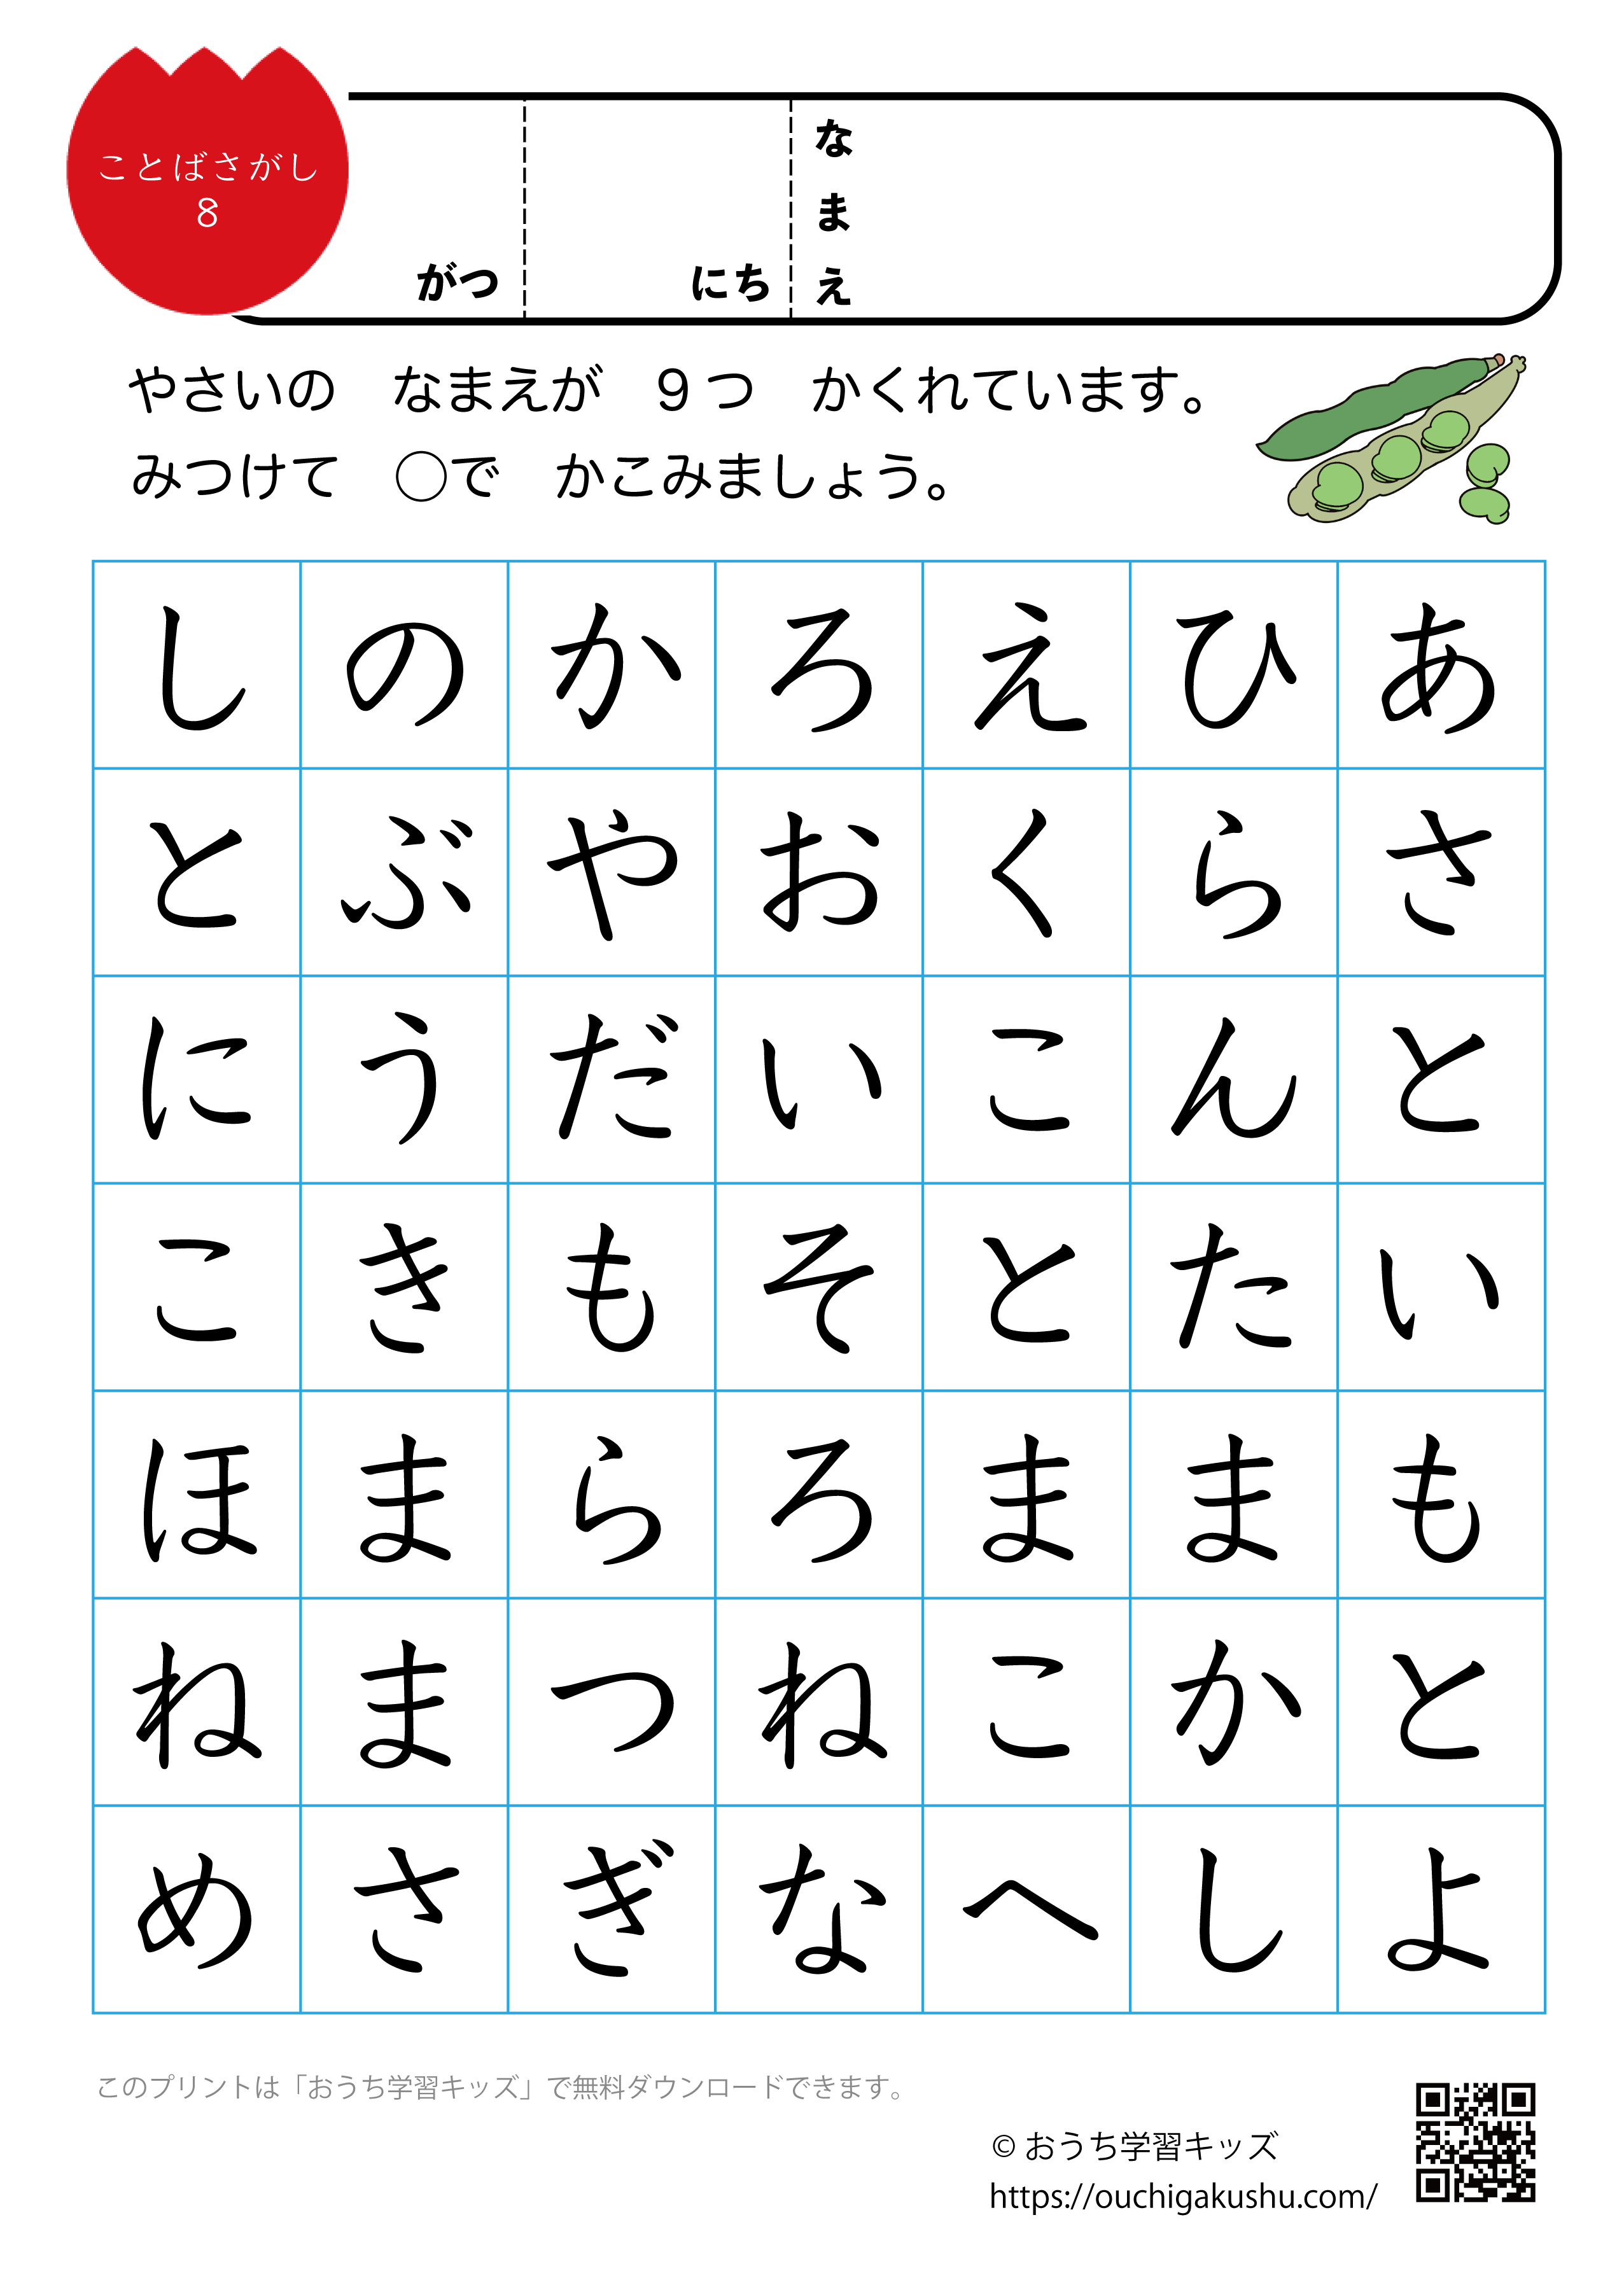 ことばさがし
8
がつ
にち
なまえ
やさいの　なまえが　９つ　かくれています。
みつけて　○で　かこみましょう。
し の か ろ え ひ あ
と ぶ や お く ら さ
に う だ い こ ん と
こ き も そ と た い
ほ ま ら ろ ま ま も
ね ま つ ね こ か と
め さ ぎ な へ し よ
このプリントは「おうち学習キッズ」で無料ダウンロードできます。
© おうち学習キッズ
https://ouchigakushu.com/